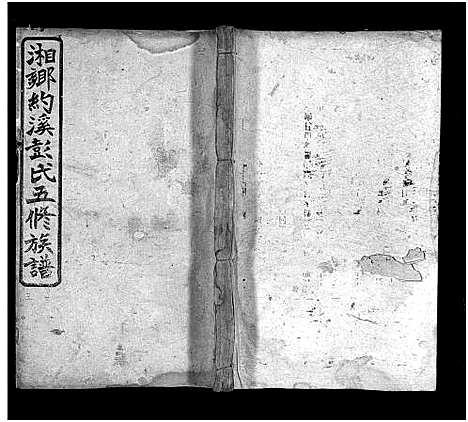 湘鄉約溪彭氏五修族譜